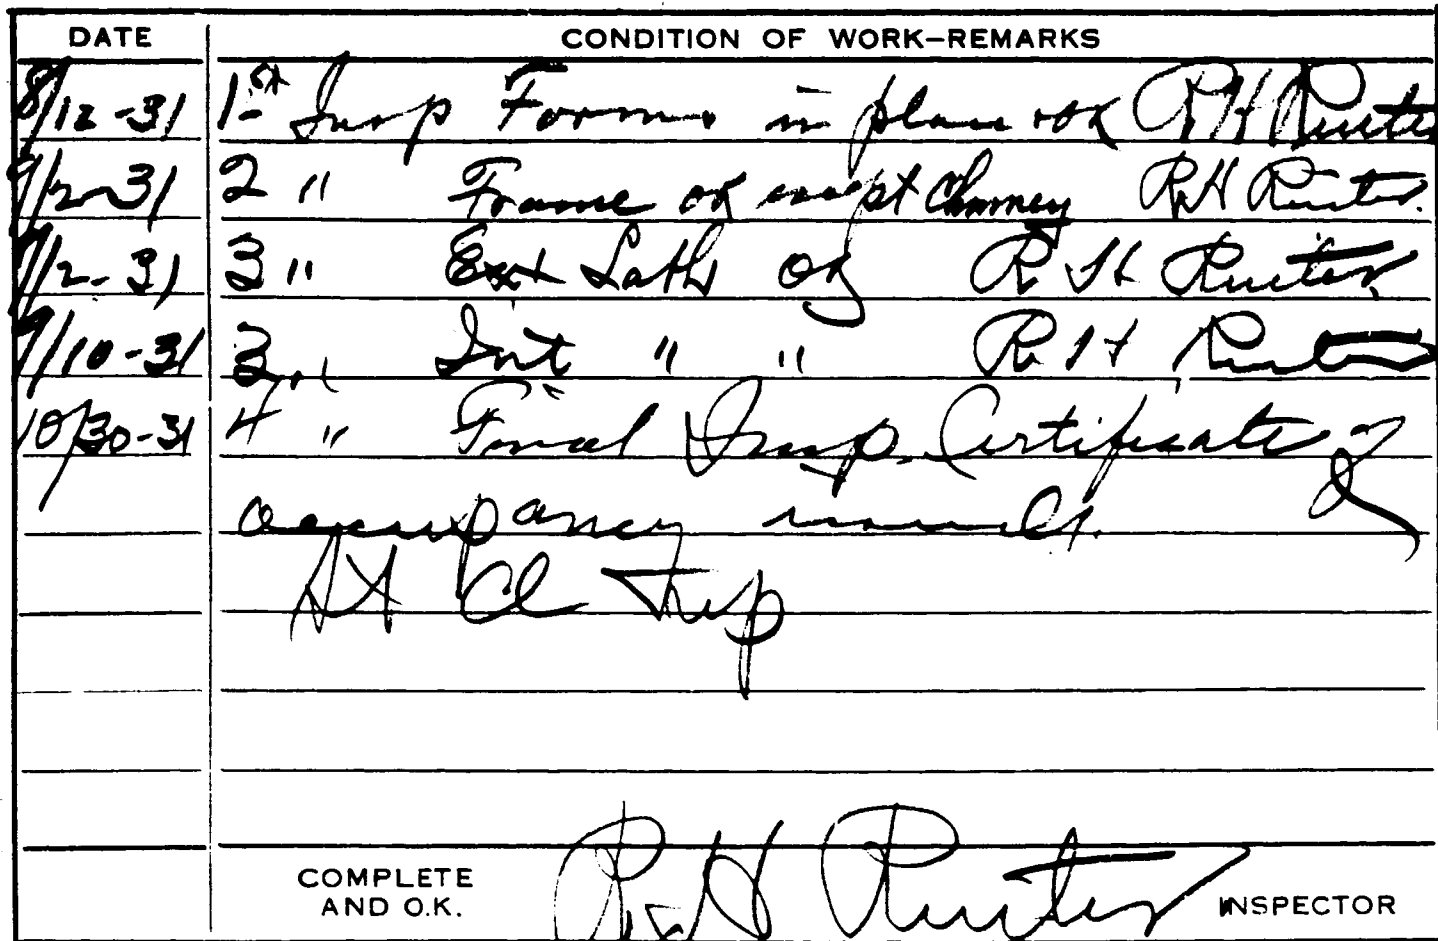 DATE CONDITION OF WORK–REMARKS
8/12-31 1st Insp Forms in place ok R H Ruiter
9/2-31 2 " Frame ok except Chimney R.H Ruiter.
9/2-31 3 " Ext Lath ok R H Ruiter
9/10-31 3 " Int " " R. H Ruiter
10/30-31 4 " Final Insp. Certificate of
occupancy issued.
COMPLETE
AND O.K. R H Ruiter INSPECTOR